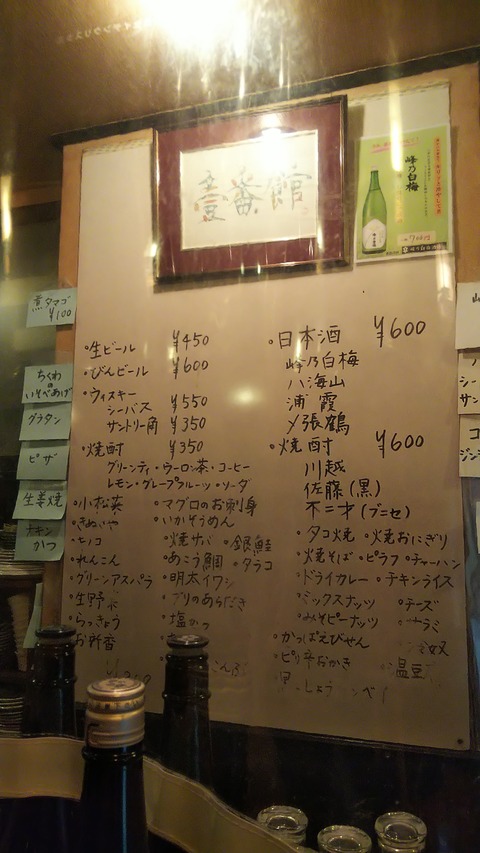 壹番館
峰乃白梅
煮タマゴ
¥100
ちくわ
の
いそべあげ
グラタン
ピザ
生姜焼
チキン
かつ
・生ビール ¥450
・びんビール ¥600
・ウィスキー
シーバス ¥550
サントリー角 ¥350
・焼酎 ¥350
グリーンティ・ウーロン茶・コーヒー
レモン・グレープフルーツ・ソーダ
・小松菜 ・マグロのお刺身
・きぬいや ・いかそうめん
・ヒノコ ・焼サバ ・銀鮭
・れんこん ・あこう鯛 ・タラコ
・グリーンアスパラ ・明太イワシ
・生野
・らっきょう ・塩かつ
・お新香
・日本酒 ¥600
峰乃白梅
八海山
浦霞
〆張鶴
・焼酎 ¥600
川越
佐藤(黒)
不二才(ブニセ)
・タコ焼 ・焼おにぎり
・焼そば ・ピラフ ・チャーハン
・ドライカレー ・チキンライス
・ミックスナッツ ・チーズ
・みそピーナッツ
・かっぱえびせん 奴
・ピリ辛おかき ・温豆